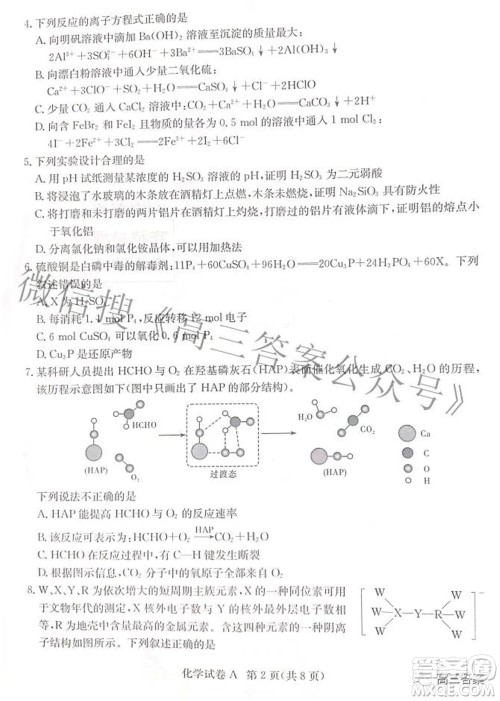 4. 下列反应的离子方程式正确的是
A. 向明矾溶液中滴加 Ba(OH)₂ 溶液至沉淀的质量最大:
2Al³⁺+3SO₄²⁻+3Ba²⁺+6OH⁻══3BaSO₄↓+2Al(OH)₃↓
B. 向漂白粉溶液中通入少量二氧化硫:
Ca²⁺+3ClO⁻+SO₂+H₂O══
C. 向 CaCl₂ 溶液中通入少量 CO₂:
Ca²⁺+CO₂+H₂O══CaCO₃↓+2H⁺
D. 向含 FeBr₂ 和 FeI₂ 且物质的量均为 0.1 mol 的溶液中通入
4I⁻+2Fe²⁺+3Cl₂══2Fe³⁺+6Cl⁻+2I₂
5. 下列实验设计合理的是
A. 用 pH 试纸测量某浓度的 H₂SO₃ 溶液的 pH, 证明 H₂SO₃ 为二元弱酸
B. 将浸过了水玻璃的木条放在酒精灯上点燃, 木条不燃烧, 证明 Na₂SiO₃ 具有防火性
C. 将打磨和未打磨的两片铝片放在酒精灯上灼烧, 均没有液体滴下, 证明铝的熔点小
于氧化铝
D. 分离氯化钠和氯化铵晶体, 可以用加热的方法
6. 硫酸铜是白磷中毒的解毒剂: 11P₄+60CuSO₄+96H₂O══20Cu₃P+24H₃PO₄+60X。下列
叙述错误的是
A. X 为 H₂SO₄
B. 每消耗 1.1 mol P₄, 反应转移 12 mol 电子
C. 6 mol CuSO₄ 可以氧化 0.6 mol
D. Cu₃P 是还原产物
7. 某科研人员提出 HCHO 与 O₂ 在羟基磷灰石(HAP)表面催化氧化生成 CO₂、H₂O 的历程,
该历程示意图如下(图中只画出了 HAP 的部分结构)。
HCHO
(HAP)
O₂
过渡态
H₂O
CO₂
(HAP)
Ca
C
O
H
下列说法不正确的是
A. HAP 能提高 HCHO 与 O₂ 的反应速率
B. 该反应可表示为: HCHO+O₂ ─HAP→ CO₂+H₂O
C. HCHO 在反应过程中, 有 C—H 键发生断裂
D. 根据图示信息, CO₂ 分子中的氧原子全部来自 O₂
8. W、X、Y、R 为依次增大的短周期主族元素, X 的一种同位素可用
于文物年代的测定, Y 核外电子数与 W 核外最外层电子数
子结构如图所示。下列叙述正确的是
W W
W—X—Y—R—W
W W
化学试卷 A 第 2 页(共 8 页)
微信搜《高三答案公众号》
高三答案